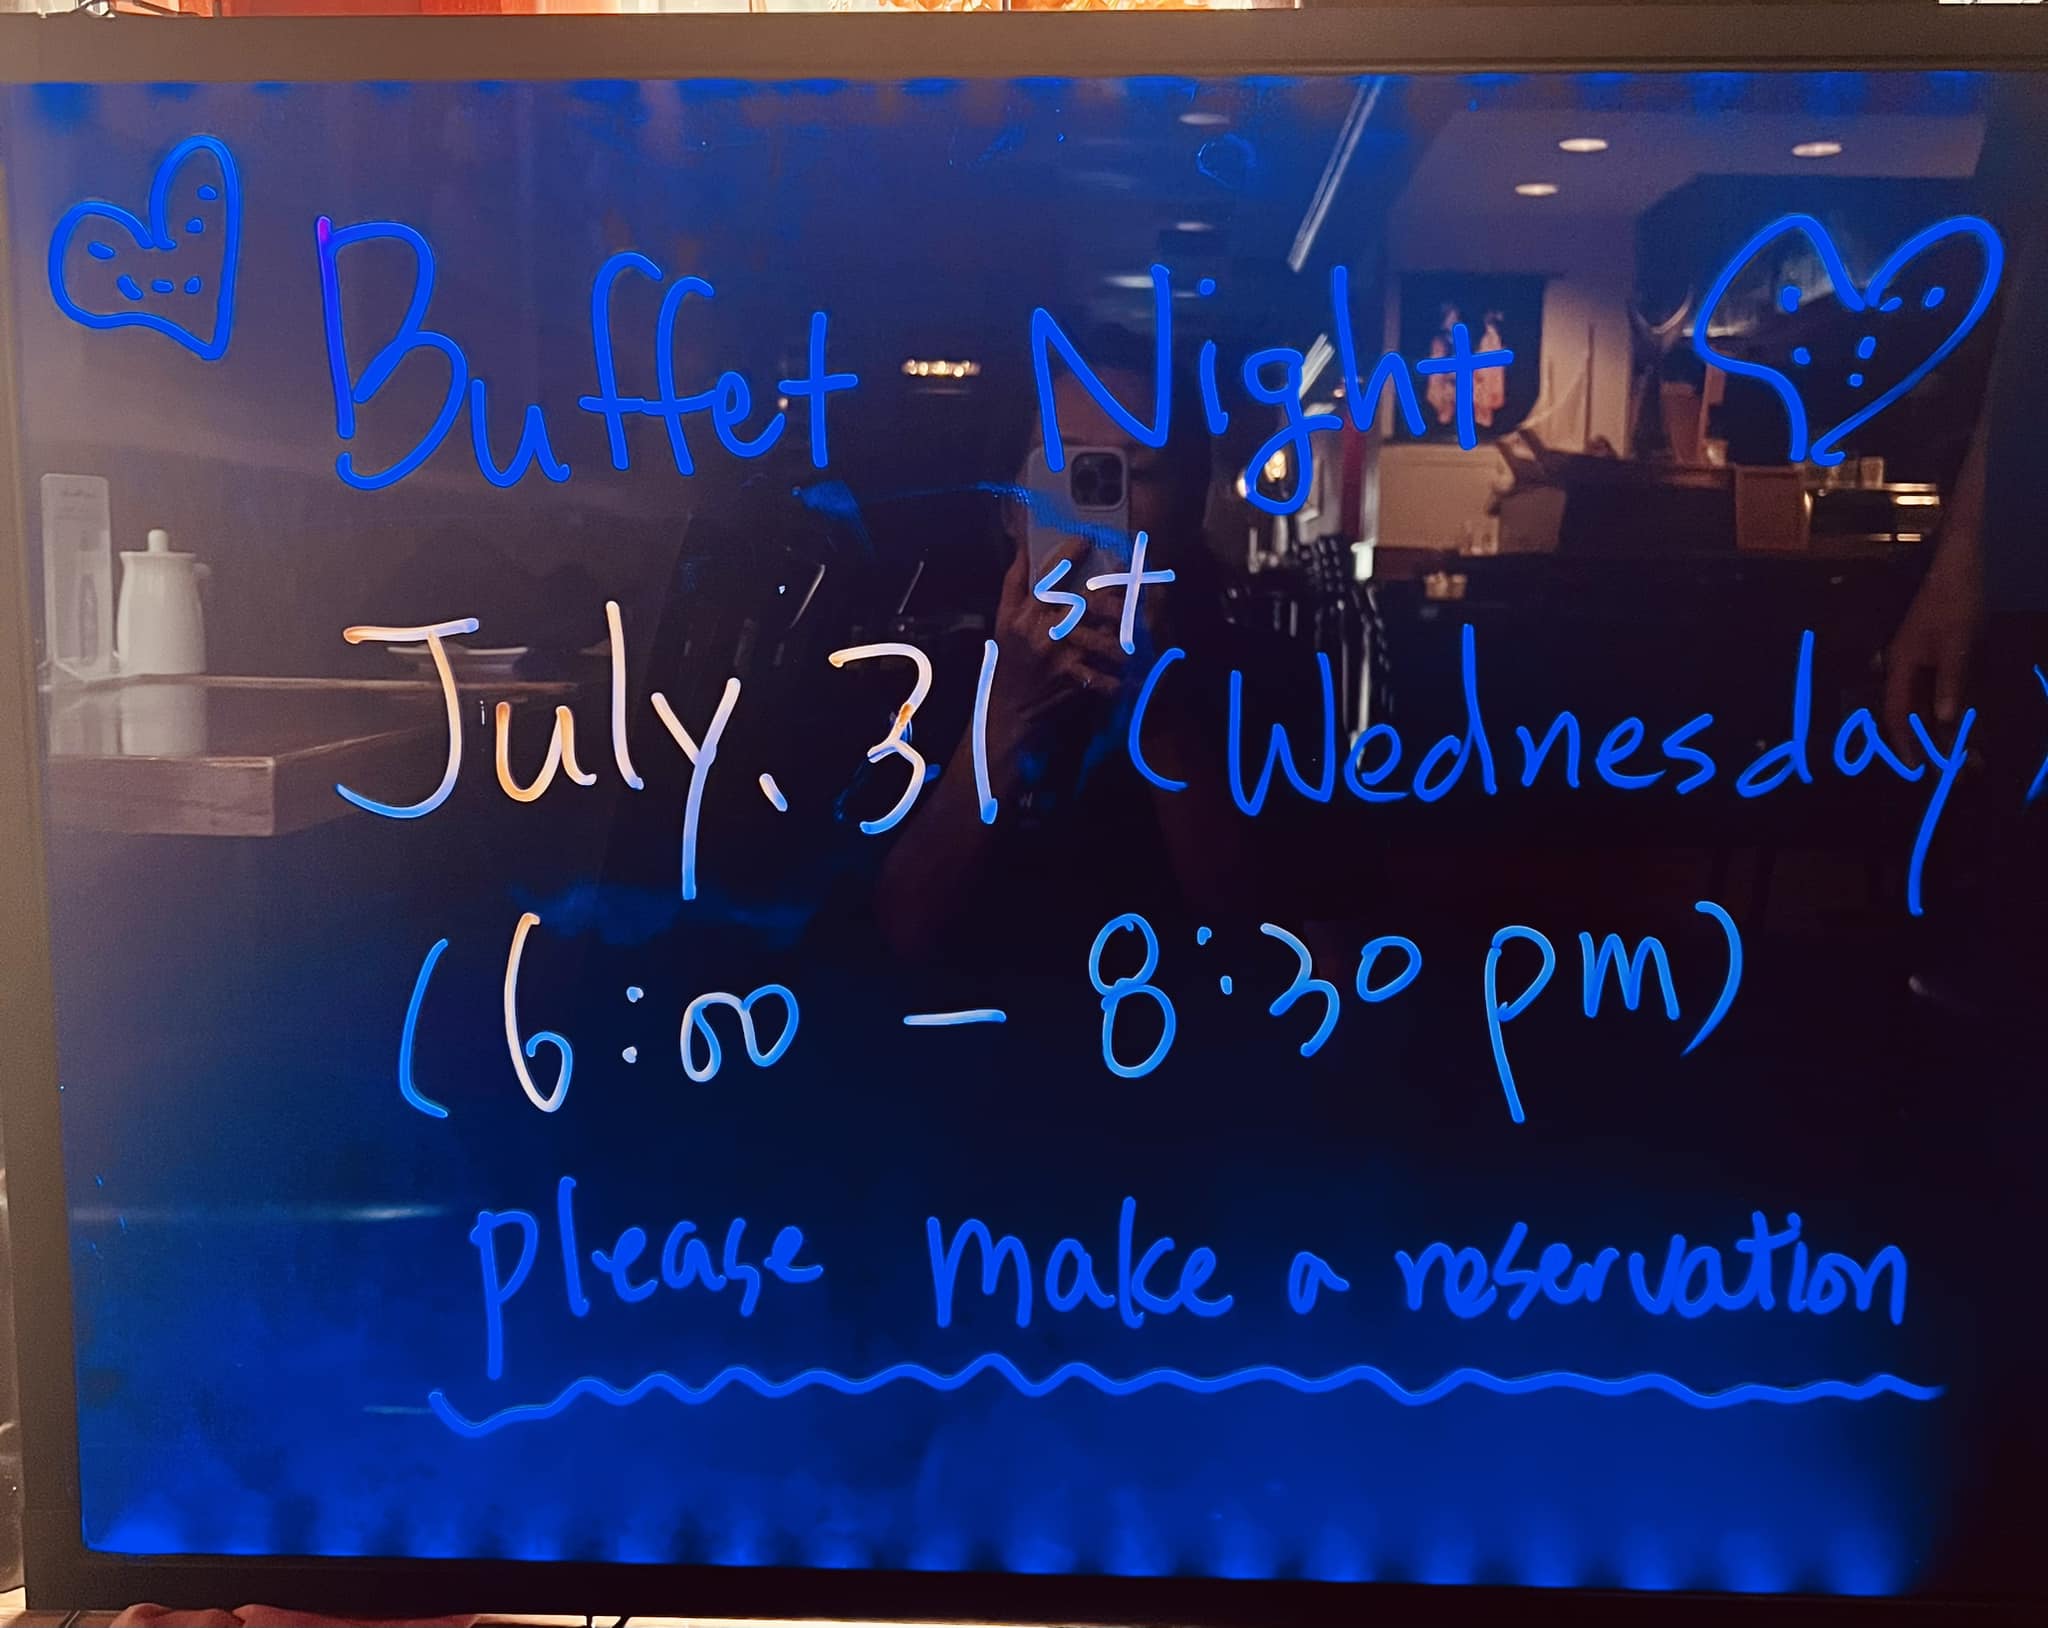 Buffet Night
July. 31st (Wednesday)
(6:00 - 8:30 pm)
please make a reservation